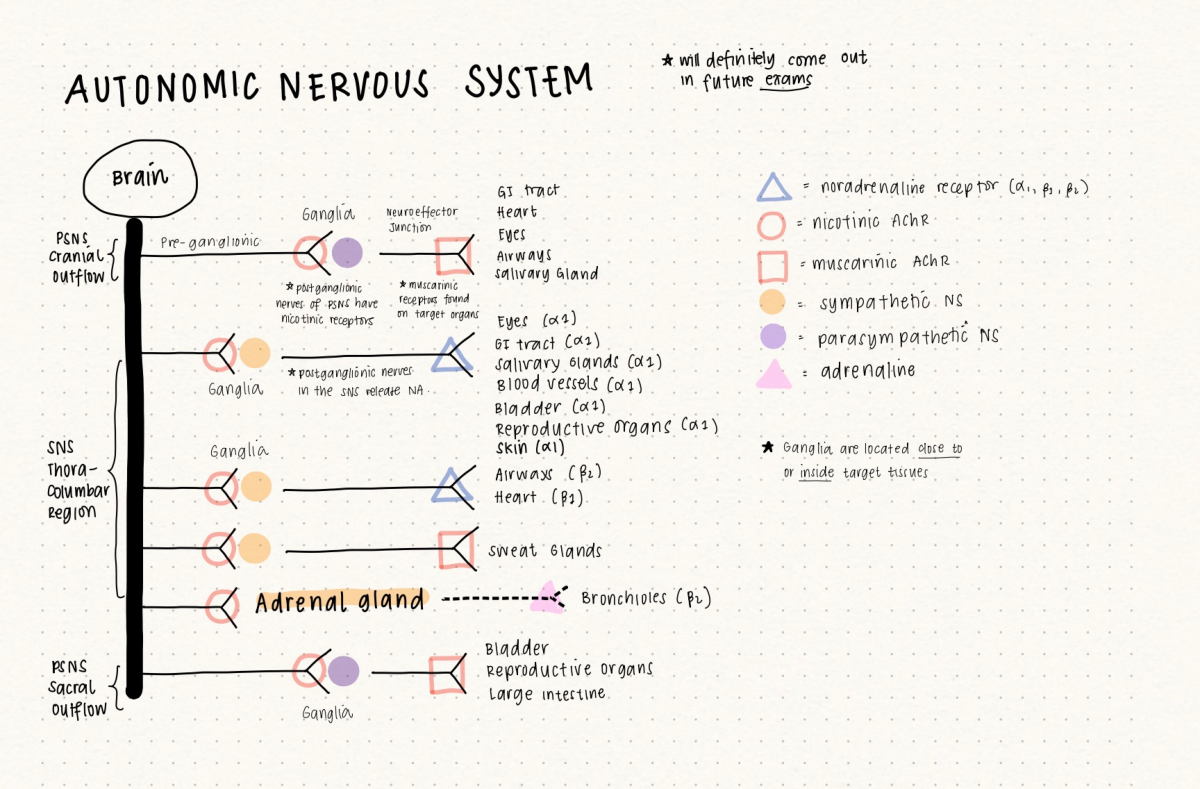 AUTONOMIC NERVOUS SYSTEM
★ will definitely come out
in future exams
Brain
PSNS
Cranial
Outflow
Pre-ganglionic
Ganglia
Neuroeffector
Junction
GI tract
Heart
Eyes
Airways
Salivary Gland
★ postganglionic
nerves of PSNS have
nicotinic receptors
★ muscarinic
receptors found
on target organs
Ganglia
★ postganglionic nerves
in the SNS release NA.
Eyes (α1)
GI tract (α1)
Salivary Glands (α1)
Blood vessels (α1)
Bladder (α1)
Reproductive organs (α1)
Skin (α1)
SNS
Thora-
Columbar
Region
Ganglia
Airways (β2)
Heart (β1)
Sweat Glands
Adrenal gland
Bronchioles (β2)
PSNS
Sacral
Outflow
Ganglia
Bladder
Reproductive organs
Large intestine
= noradrenaline receptor (α1, β1, β2)
= nicotinic AChR
= muscarinic AChR
= sympathetic NS
= parasympathetic NS
= adrenaline
★ Ganglia are located close to
or inside target tissues